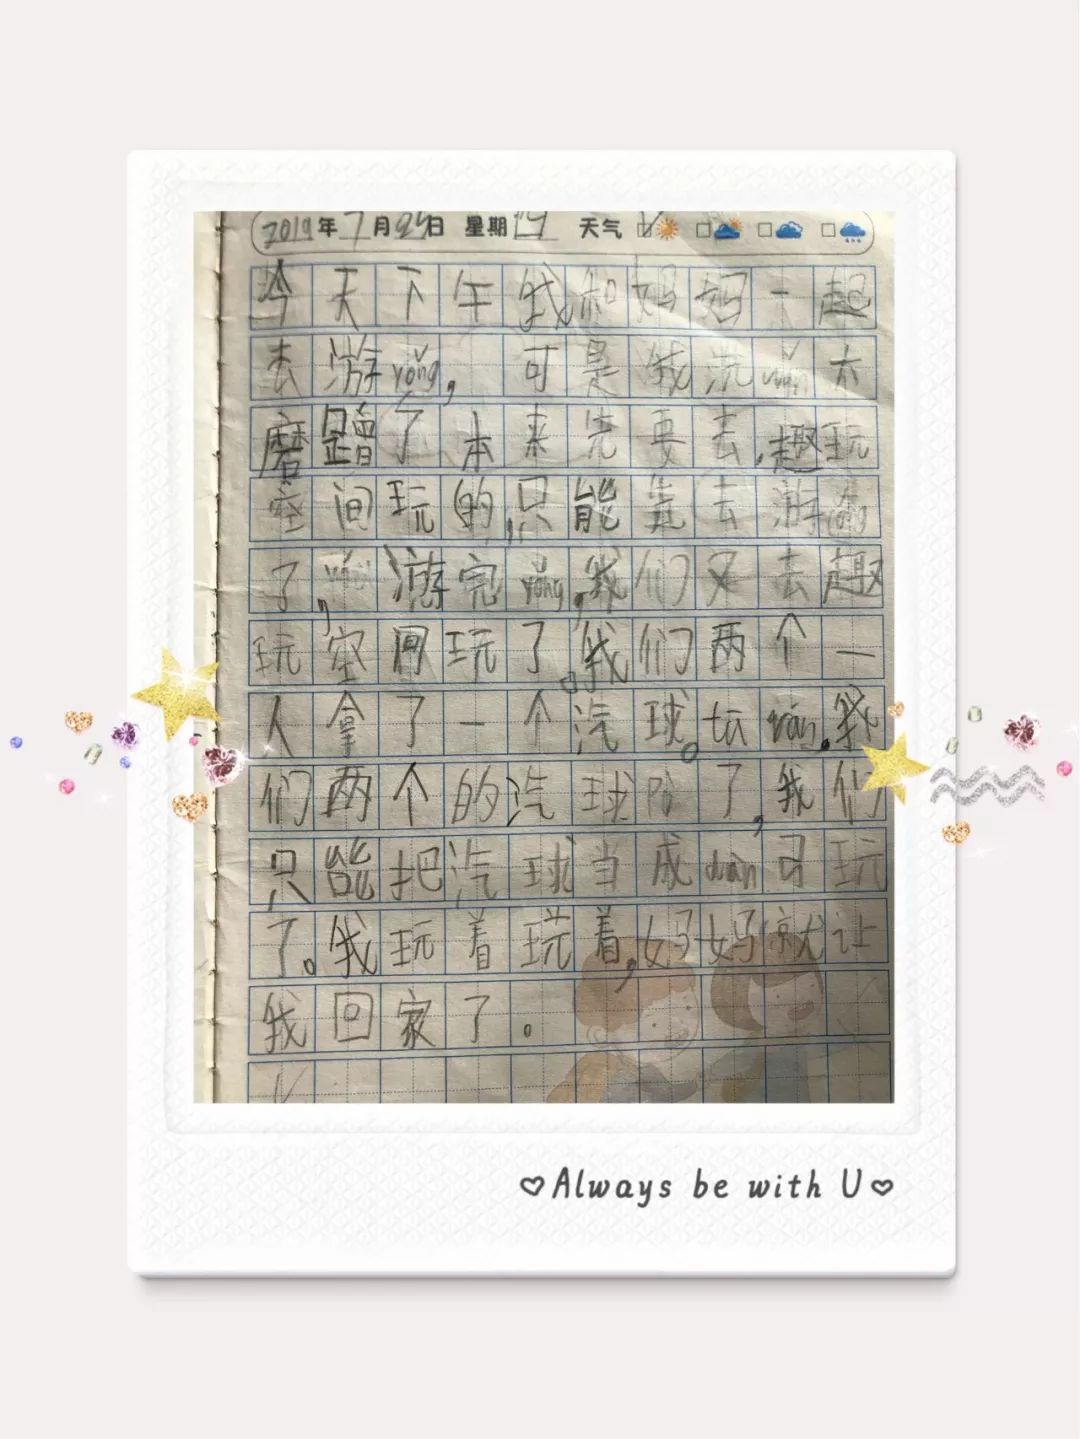 2019年7月24日 星期 天气
今天下午我和妈妈一起
去游yǒng,可是我洗wǎn太
磨蹭了本来先要去,趣玩
空间玩的,只能先去游yǒng
了,游完yǒng,我们又去趣
玩空间玩了。我们两个一
人拿了一个汽球。tū rán,我
们两个的汽球没了,我们
只能把汽球当成dàn弓玩
了。我玩着玩着,妈妈就让
我回家了。
Always be with U